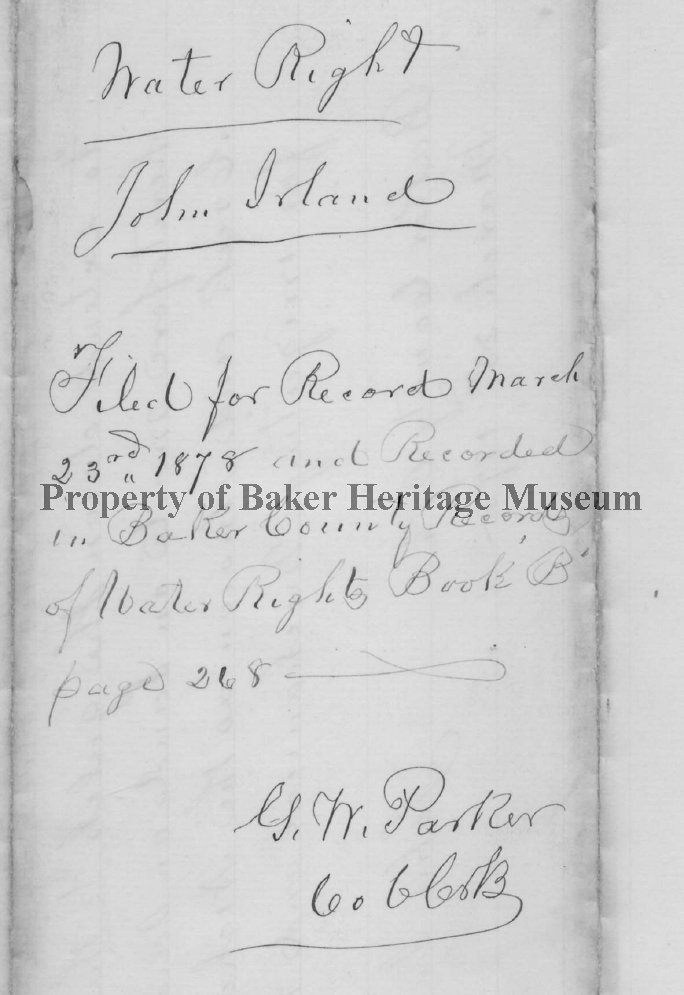 Water Right
John Irland
Filed for Record March
23rd 1878 and Recorded
Property of Baker Heritage Museum
in Baker County Records
of Water Rights Book "B"
page 268
G. W. Parker
Co Clerk